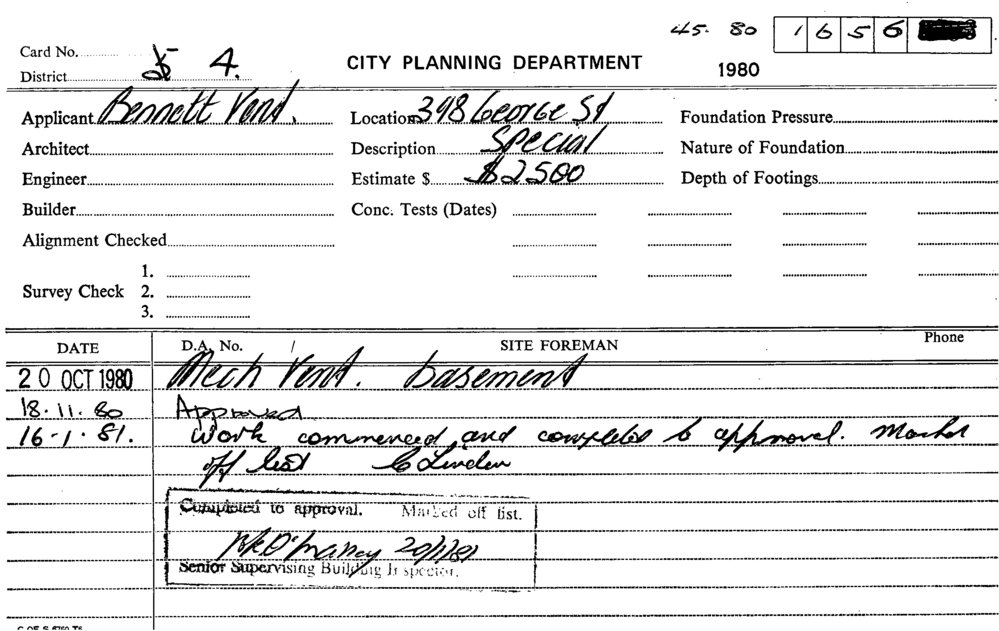 45. 80 1656
Card No.
District 4.
CITY PLANNING DEPARTMENT
1980
Applicant Bennett Vent.
Location 398 George St
Foundation Pressure
Architect
Description Special
Nature of Foundation
Engineer
Estimate $ $2500
Depth of Footings
Builder
Conc. Tests (Dates)
Alignment Checked
1.
Survey Check 2.
3.
DATE D.A. No. / SITE FOREMAN Phone
20 OCT 1980 Mech Vent. basement
18.11.80 Approved
16-1.81. Work commenced and completed to approval. Marked
off list C Linden
Completed to approval. Marked off list.
20/1/81
Senior Supervising Building Inspector.
C OF S 6760 T5